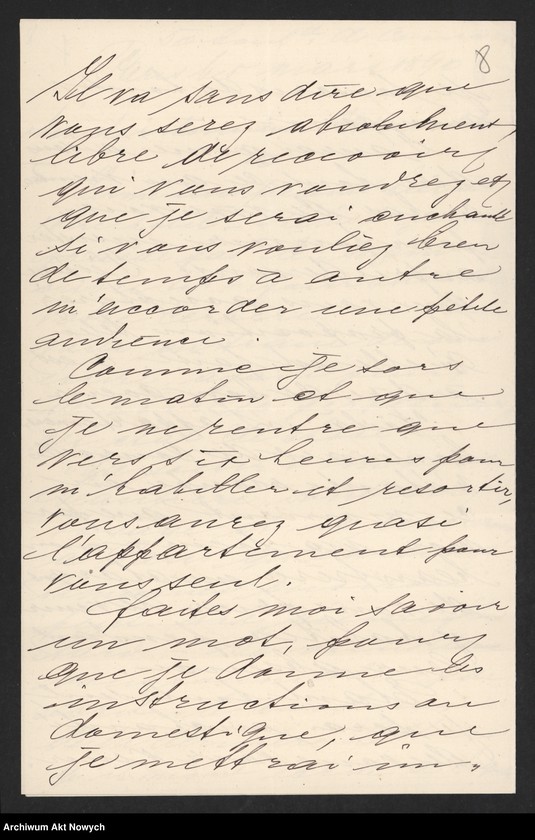 8
Il va sans dire que
vous serez absolument
libre de recevoir
qui vous voudrez et
que je serai enchanté
si vous vouliez bien
de temps à autre
m'accorder une petite
audience.
Comme je sors
le matin et que
je ne rentre que
vers six heures pour
m'habiller et resortir,
vous aurez quasi
l'appartement pour
vous seul.
faites moi savoir
un mot, pour
que je donne les
instructions au
domestique, que
je mettrai im-
Archiwum Akt Nowych